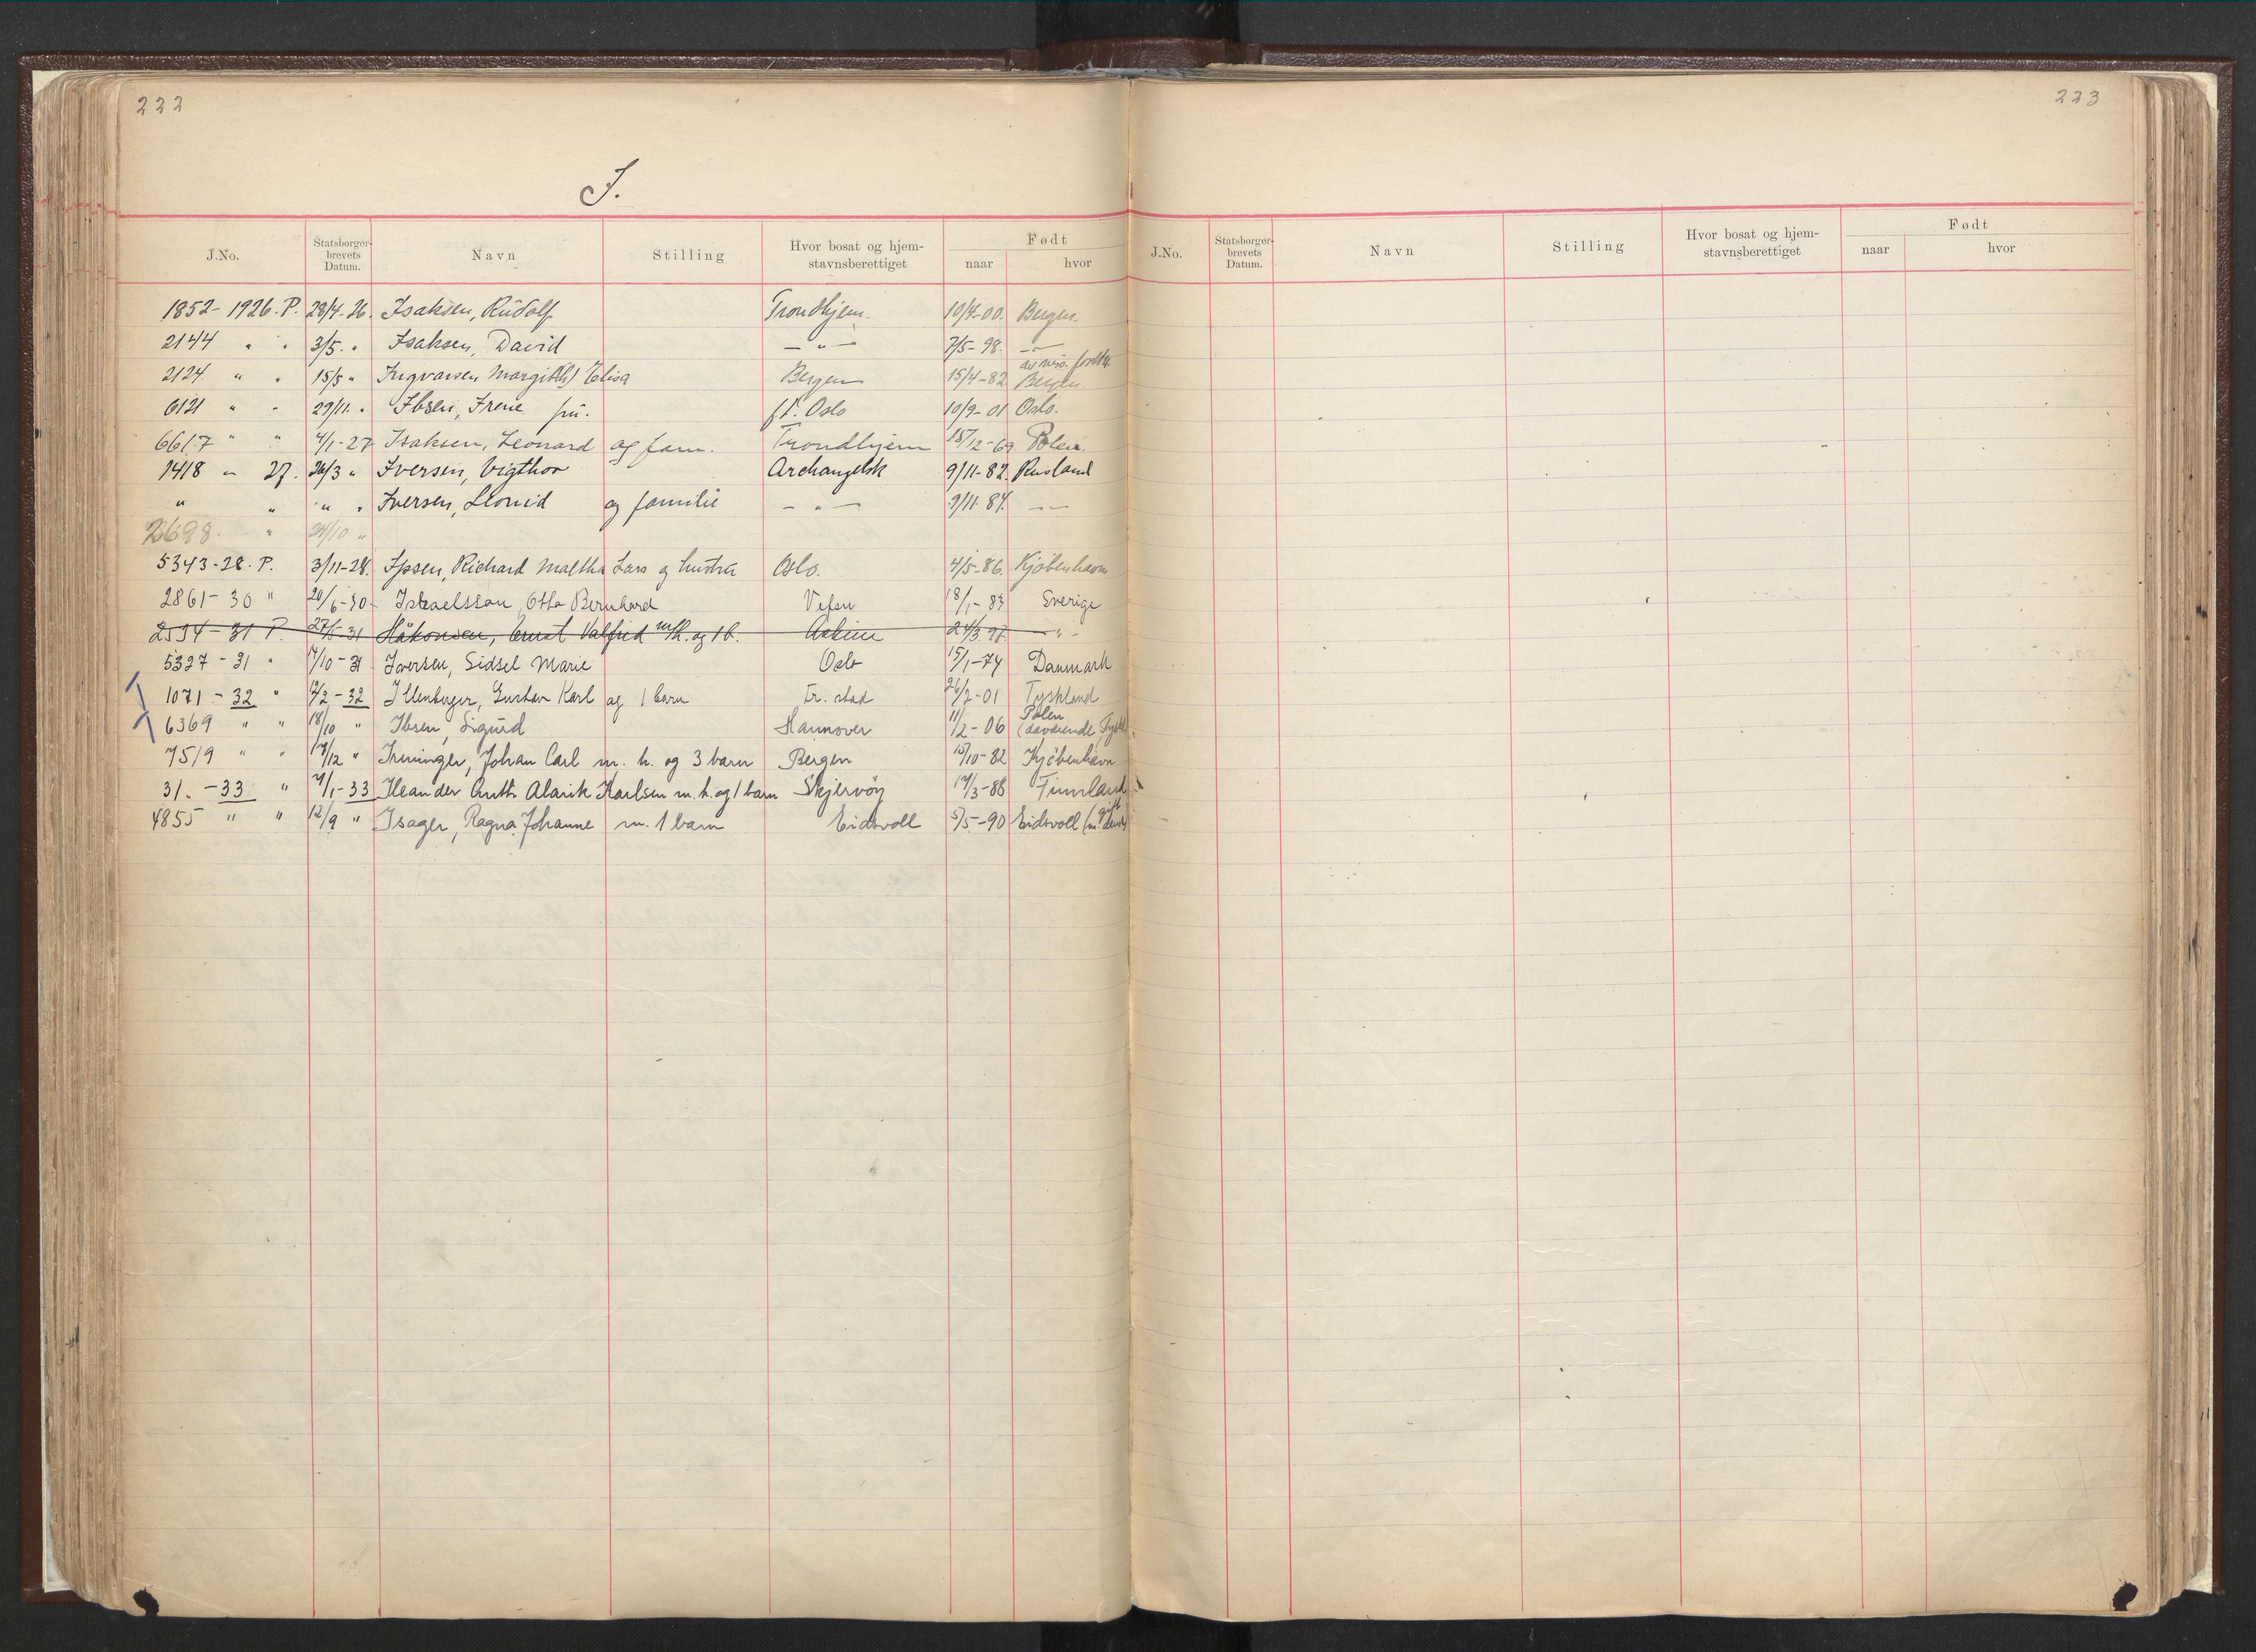 222
223
I.
J.No. Statsborger-brevets Datum. Navn Stilling Hvor bosat og hjem-stavnsberettiget Født naar hvor
J.No. Statsborger-brevets Datum. Navn Stilling Hvor bosat og hjem-stavnsberettiget Født naar hvor
1852 - 1926. P. 28/4-26. Isaksen, Rudolf Trondhjem. 10/4-00. Bergen.
2144 " " 3/5. " Isaksen, David — " — 7/5-98. — " —
2124. " " 15/5 " Ingvarsen Margit Elisa Bergen 15/4-82 Bergen
6121 " " 29/11. " Ibsen, Irene fru. f. Oslo 10/9-01 Oslo.
6617 " " 4/1-27 Isaksen, Leonard og fam. Trondhjem 15/12-69 Polen.
1418 " 27. 26/3 " Iversen, Vigthor Archangelsk 9/11-82. Rusland
" " " " Iversen, Leonid og familie — " — 9/11 84. — " —
2698. " 24/10 "
5343-28. P. 3/11-28. Ipsen, Richard Malthe Lars og hustru Oslo. 4/5-86. Kjøbenhavn
2861 - 30 " 20/6-30 Israelsson, Otto Bernhard Vefsn 18/1-83 Sverige
2594 - 31 P. 27/5-31 Håkonsen, Ernst Valfrid m/h. og 1 b. Askim 24/3 97 — " —
5327 - 31 " 17/10-31 Iversen, Sidsel Marie Oslo 15/1-74 Danmark
1071 - 32 " 12/2-32 Illenberger, Gustav Karl og 1 barn Fr. stad 26/7-01 Tyskland
6369 " " 18/10 " Ibsen, Sigurd Hannover 11/2-06 Polen (daværende Tyskl.)
7519 " " 17/12 " Ireninger, Johan Carl m. h. og 3 barn Bergen 15/10-82 Kjøbenhavn
31. - 33 " 4/1-33 Ileander Antti Alarik Karlsen m. h. og 1 barn Skjervöy 17/3-88 Finnland
4855 " " 12/9 " Isager, Ragna Johanne m. 1 barn Eidsvoll 5/5-90 Eidsvoll (gift m. dansk)